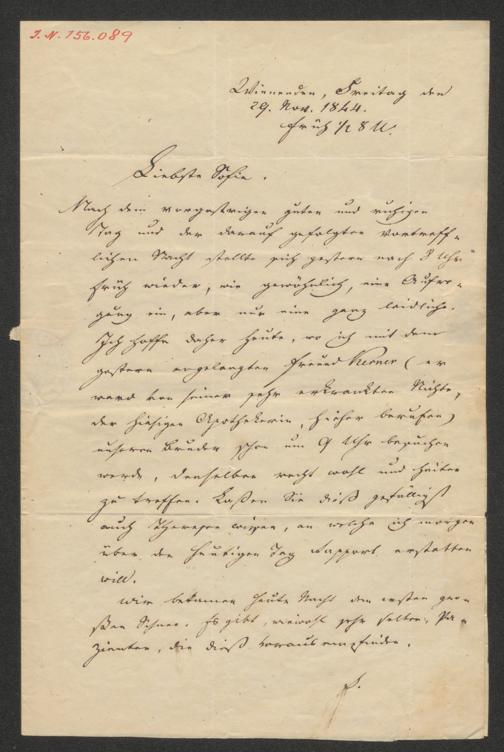 I. N. 156.089
Winnenden, Freitag den
29. Nov. 1844.
früh ½ 8 U.
Liebste Sofie.
Nach dem vorgestrigen guten und ruhigen
Tag und der darauf gefolgten vortreff-
lichen Nacht stellte sich gestern nach 8 Uhr
früh wieder, wie gewöhnlich, eine Aufre-
gung ein, aber nur eine ganz leidliche.
Ich hoffe daher heute, wo ich mit dem
gestern angelangten Freund Kerner (er
ward von seiner sehr erkrankten Nichte,
der hiesigen Apothekerin, hieher berufen)
unseren Bruder schon um 9 Uhr besuchen
werde, denselben recht wohl und heiter
zu treffen. Laßen Sie dieß gefälligst
auch Theresen wissen, an welche ich morgen
über den heutigen Tag Rapport erstatten
will.
Wir bekamen heute Nacht den ersten gro-
ßen Schnee. Es gibt, wiewohl sehr selten, Pa-
zienten, die dieß voraus empfinden.